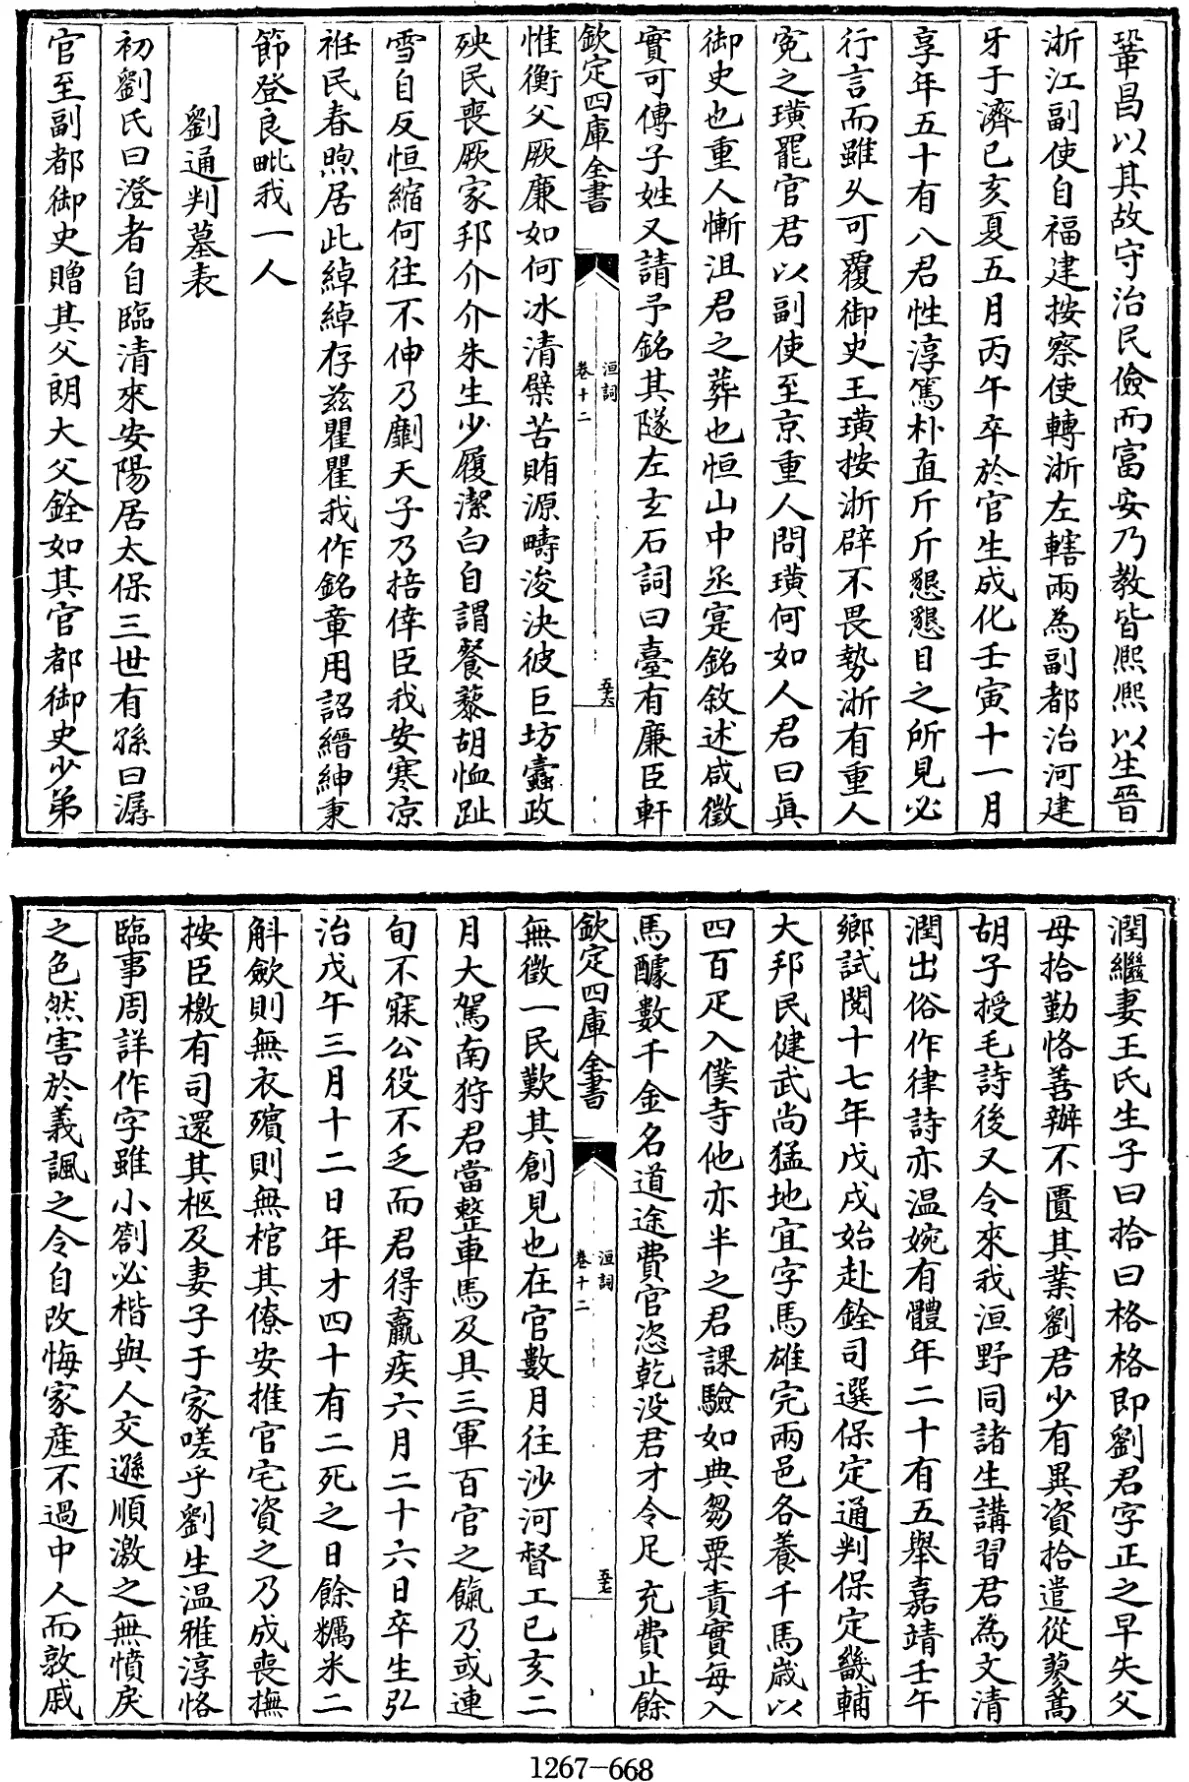 鞏昌以其故守治民儉而富安乃教皆熙熙以生晉
浙江副使自福建按察使轉浙左轄兩為副都治河建
牙于濟己亥夏五月丙午卒於官生成化壬寅十一月
享年五十有八君性淳篤朴直斤斤懇懇目之所見必
行言而雖久可覆御史王璜按浙辟不畏勢浙有重人
寃之璜罷官君以副使至京重人問璜何如人君曰真
御史也重人慚沮君之葬也恒山中丞寔銘敘述咸徵
實可傳子姓又請予銘其隧左玄石詞曰臺有廉臣軒
欽定四庫全書
洹詞
卷十二
五十六
惟衡父厥廉如何冰清檗苦賄源疇浚決彼巨坊蠹政
殃民喪厥家邦介介朱生少履潔白自謂餐藜胡恤趾
雪自反恒縮何往不伸乃劘天子乃掊倖臣我安寒凉
袵民春煦居此綽綽存兹瞿瞿我作銘章用詔縉紳秉
節登良毗我一人
劉通判墓表
初劉氏曰澄者自臨清來安陽居太保三世有孫曰潺
官至副都御史贈其父朗大父銓如其官都御史少弟
潤繼妻王氏生子曰拾曰格格即劉君字正之早失父
母拾勤恪善辦不匱其業劉君少有異資拾遣從藜蒿
胡子授毛詩後又令來我洹野同諸生講習君為文清
潤出俗作律詩亦温婉有體年二十有五舉嘉靖壬午
鄉試閱十七年戊戌始赴銓司選保定通判保定畿輔
大邦民健武尚猛地宜字馬雄完兩邑各養千馬歲以
四百疋入僕寺他亦半之君課驗如典芻粟責實每入
馬醵數千金名道途費官恣乾沒君才令足充費止餘
欽定四庫全書
洹詞
卷十二
五十七
無徵一民歎其創見也在官數月往沙河督工已亥二
月大駕南狩君當整車馬及具三軍百官之餼乃或連
旬不寐公役不乏而君得羸疾六月二十六日卒生弘
治戊午三月十二日年才四十有二死之日餘糲米二
斛歛則無衣殯則無棺其僚安推官宅資之乃成喪撫
按臣檄有司還其柩及妻子于家嗟乎劉生温雅淳恪
臨事周詳作字雖小劄必楷與人交遜順激之無憤戾
之色然害於義諷之令自改悔家産不過中人而敦戚
1267-668